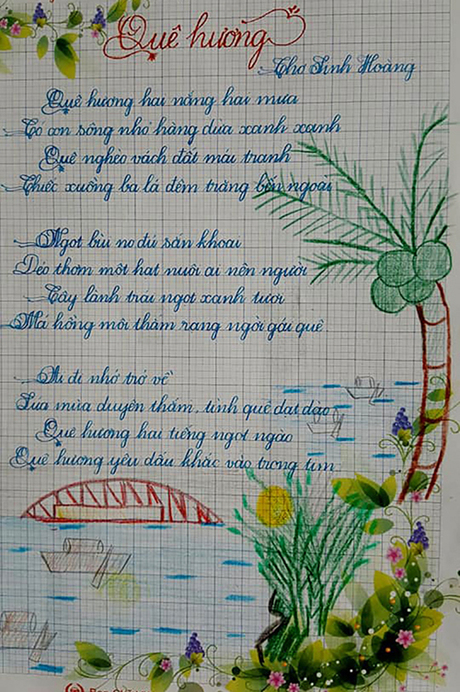 Quê hương
Thơ Sinh Hoàng
Quê hương hai nắng hai mưa
Có con sông nhỏ hàng dừa xanh xanh
Quê nghèo vách đất mái tranh
Chiếc xuồng ba lá đêm trăng bến ngoài
Ngọt bùi no đủ sắn khoai
Dẻo thơm một hạt nuôi ai nên người
Cây lành trái ngọt xanh tươi
Má hồng môi thắm rạng ngời gái quê
Ai đi nhớ trở về
Lúa mùa duyên thắm, tình quê dạt dào
Quê hương hai tiếng ngọt ngào
Quê hương yêu dấu khắc vào trong tim